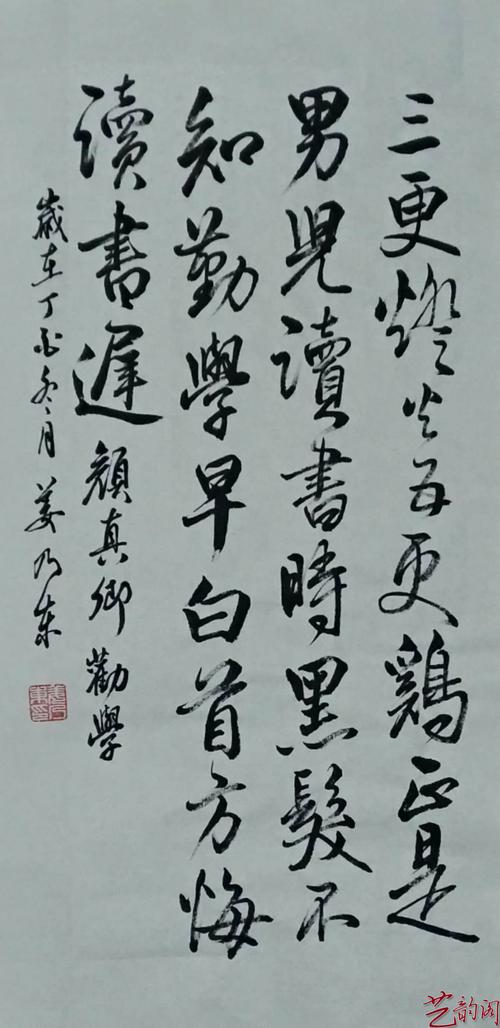 三更燈火五更鷄正是
男兒讀書時黑髮不
知勤學早白首方悔
讀書遲 顏真卿勸學
歲在丁酉冬月姜乃東
艺韵阁